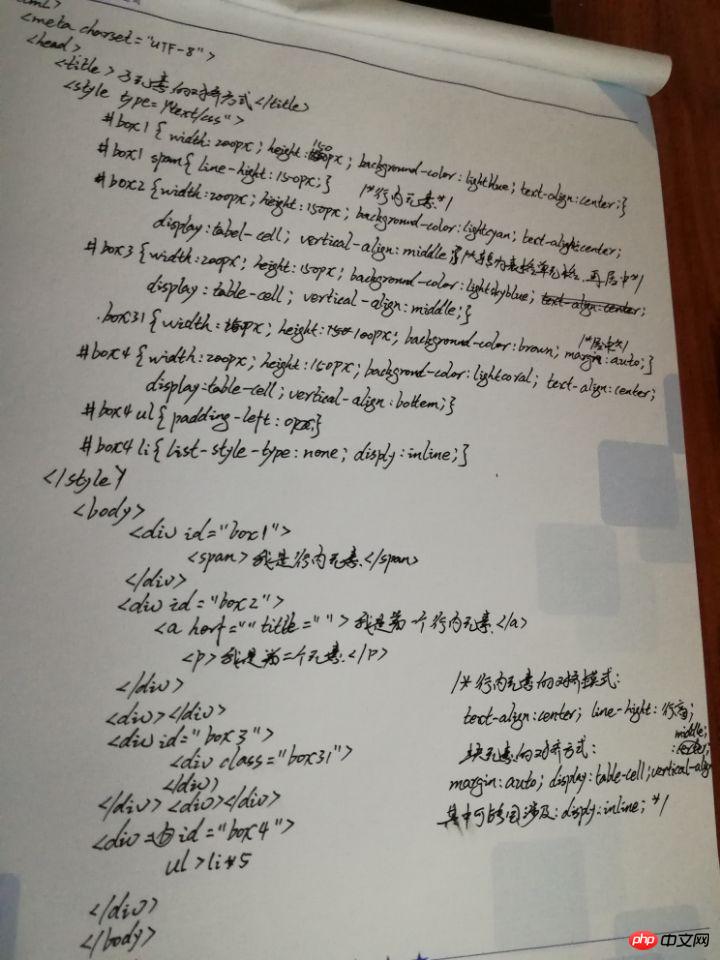 <meta charset="UTF-8">
<head>
<title>子元素的对齐方式</title>
<style type="text/css">
#box1 { width: 200px; height: 150px; background-color: lightblue; text-align: center;}
#box1 span{ line-hight: 150px;} /*行内元素*/
#box2 {width: 200px; height: 150px; background-color: lightcyan; text-align: center;
display: tabel-cell; vertical-align: middle /*转为表格单元格 再居中*/
#box3 {width: 200px; height: 150px; background-color: lightskyblue;
display: table-cell; vertical-align: middle;}
.box31 {width: px; height: 100px; background-color: brown; margin: auto;} /*居中*/
#box4 {width: 200px; height: 150px; background-color: lightcoral; text-align: center;
display: table-cell; vertical-align: bottem;}
#box4 ul{ padding-left: 0px;}
#box4 li{ list-style-type: none; disply: inline;}
</style>
<body>
<div id="box1">
<span>我是行内元素.</span>
</div>
<div id="box2">
<a horf="" title="">我是第一个行内元素.</a>
<p>我是第二个元素.</p>
</div> /*行内元素的对齐模式:
<div></div> text-align: center; line-hight: 行高;
<div id="box3"> middle;
<div class="box31"> 块元素的对齐方式:
</div> margin: auto; display: table-cell; vertical-align
</div> <div></div> 其中可能会涉及: disply: inline; */
<div id="box4">
ul>li*5
</div>
</body>
php 中文网